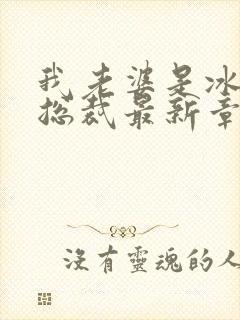 我老婆是冰
总裁最新章
没有靈魂的人